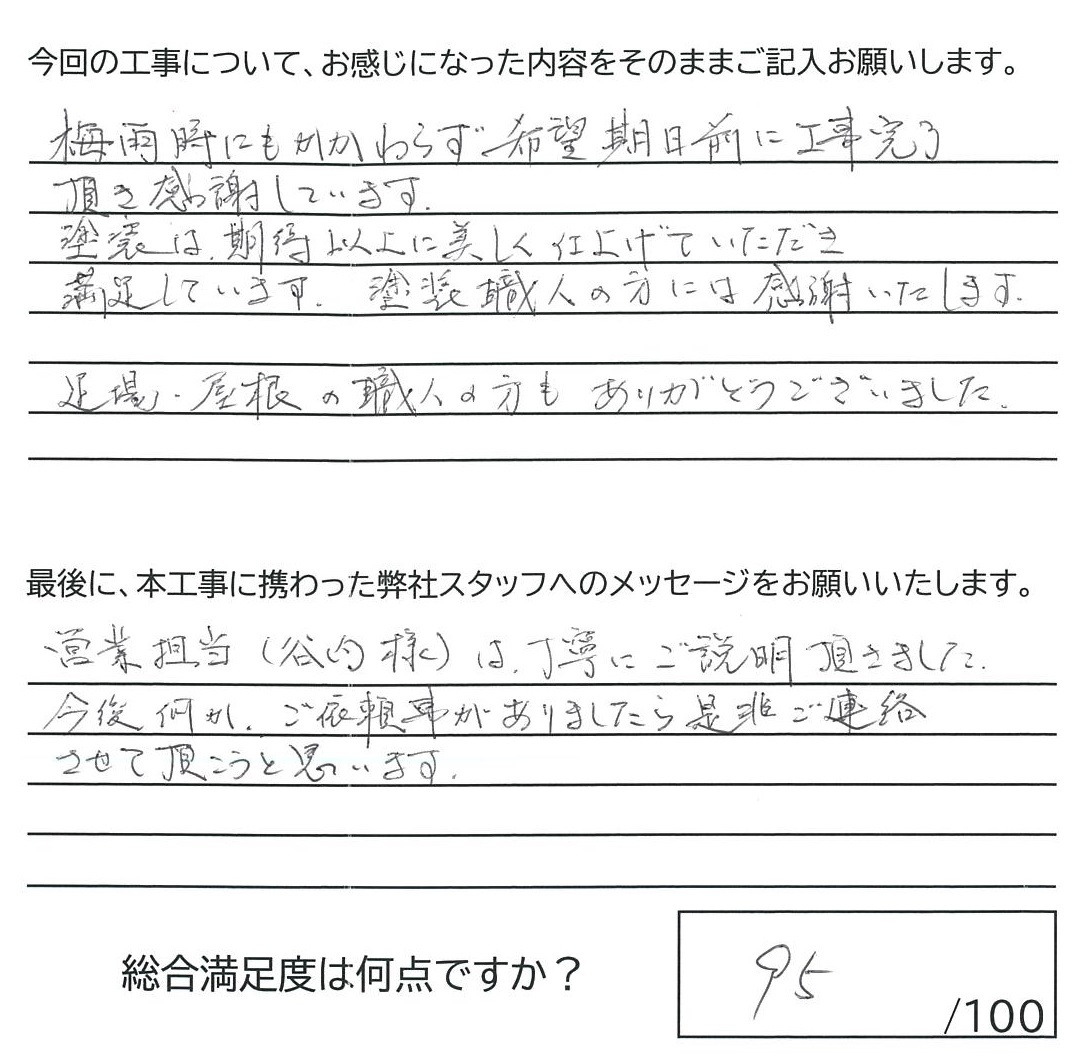 今回の工事について、お感じになった内容をそのままご記入お願いします。
梅雨時にもかかわらず希望期日前に工事完了
頂き感謝しています。
塗装は、期待以上に美しく仕上げていただき
満足しています。 塗装職人の方には感謝いたします。
足場・屋根の職人の方もありがとうございました。
最後に、本工事に携わった弊社スタッフへのメッセージをお願いいたします。
営業担当（谷内様）は、丁寧にご説明頂きました。
今後何か、ご依頼事がありましたら是非ご連絡
させて頂こうと思います。
総合満足度は何点ですか？
95
/100